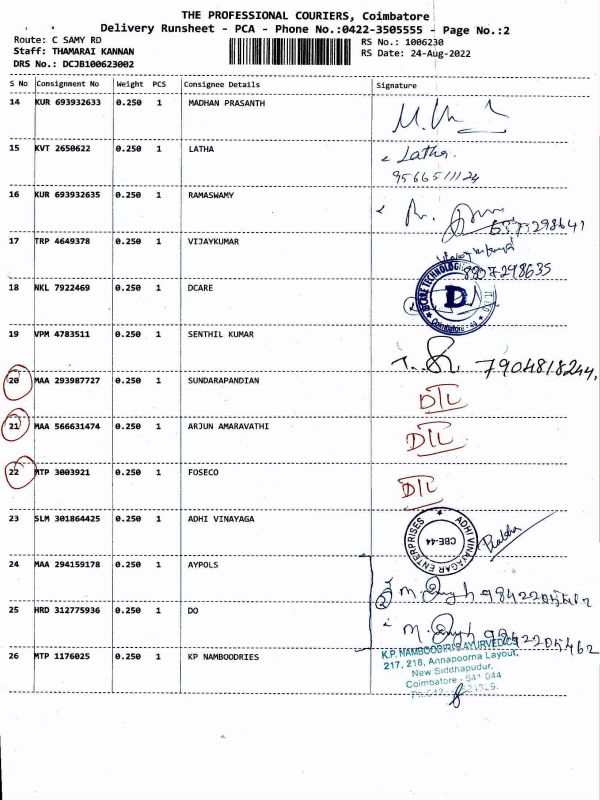 THE PROFESSIONAL COURIERS, Coimbatore
Delivery Runsheet - PCA - Phone No.:0422-3505555 - Page No.:2
Route: C SAMY RD
RS No.: 1006230
Staff: THAMARAI KANNAN
RS Date: 24-Aug-2022
DRS No.: DCJB100623002
S No Consignment No Weight PCS Consignee Details Signature
14 KUR 693932633 0.250 1 MADHAN PRASANTH
15 KVT 2650622 0.250 1 LATHA Latha.
9566511124
16 KUR 693932635 0.250 1 RAMASWAMY
17 TRP 4649378 0.250 1 VIJAYKUMAR
8807298635
18 NKL 7922469 0.250 1 DCARE
D
Coimbatore
19 VPM 4783511 0.250 1 SENTHIL KUMAR
7904818244,
20 MAA 293987727 0.250 1 SUNDARAPANDIAN DTL
21 MAA 566631474 0.250 1 ARJUN AMARAVATHI DTL
22 MTP 3003921 0.250 1 FOSECO DTL
23 SLM 301864425 0.250 1 ADHI VINAYAGA
ADHI VINAYAGAR ENTERPRISES
CBE-44
Prabha
24 MAA 294159178 0.250 1 AYPOLS
25 HRD 312775936 0.250 1 DO
9842205462
26 MTP 1176025 0.250 1 KP NAMBOODRIES
K.P. NAMBOODIRI'S AYURVEDICS
217, 218, Annapoorna Layout,
New Siddhapudur,
Coimbatore - 641 044